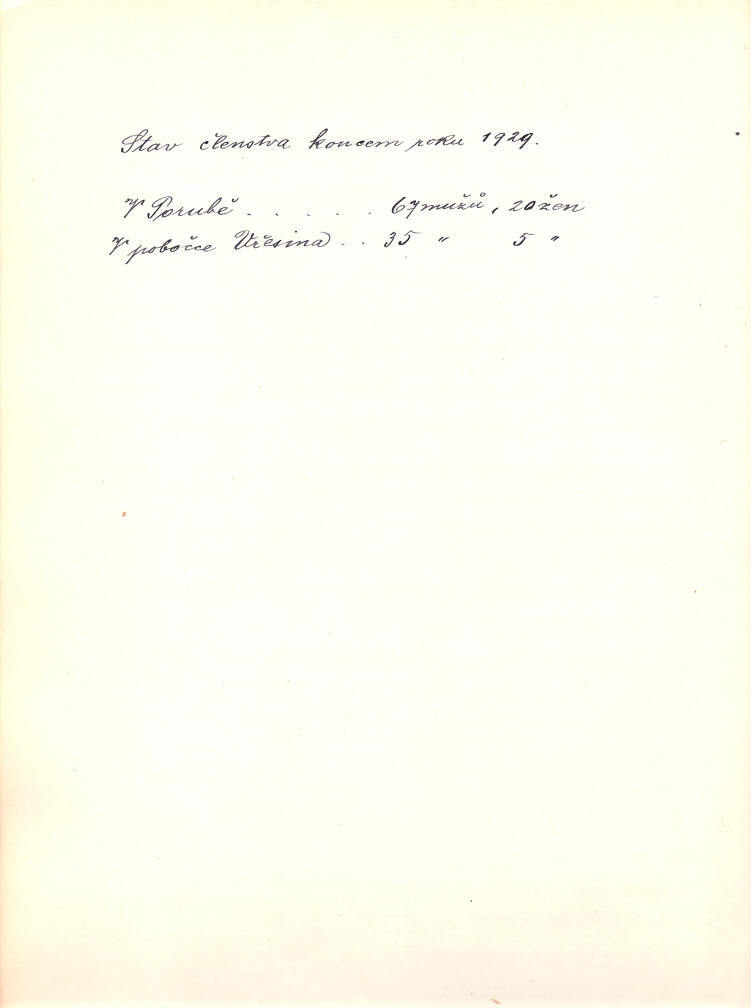 Stav členstva koncem roku 1929.
V Porubě . . . . . 67 mužů, 20 žen
V pobočce Vřesina . . 35 " 5 "